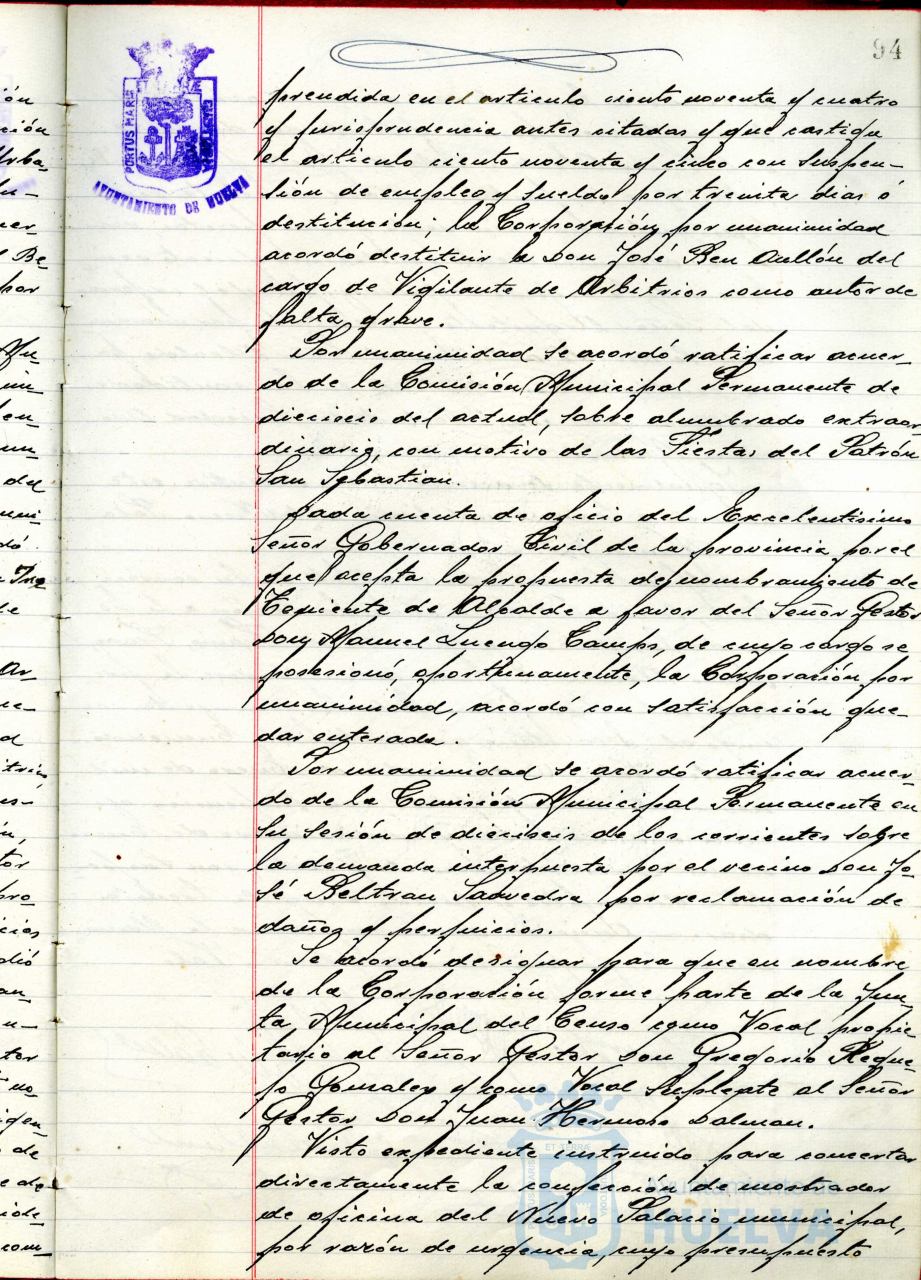 94
PORTUS MARIS ET TERRAE CUSTODIA
AYUNTAMIENTO DE HUELVA
prendida en el articulo ciento noventa y cuatro
y jurisprudencia antes citadas y que castiga
el articulo ciento noventa y cinco con suspen-
sión de empleo y sueldo por treinta dias ó
destitución; la Corporación por unanimidad
acordó destituir a Don José Ben Aullón del
cargo de Vigilante de Arbitrios como autor de
falta grave.
Por unanimidad se acordó ratificar acuer-
do de la Comisión Municipal Permanente de
del actual, sobre alumbrado extraor-
dinario, con motivo de las Fiestas del Patrón
San Sebastian.
Dada cuenta de oficio del Excelentisimo
Señor Gobernador Civil de la provincia por el
que acepta la propuesta de nombramiento de
Teniente de Alcalde a favor del Señor Gestor
Don Manuel Luengo Camps, de cuyo cargo se
posesionó, oportunamente, la Corporación por
unanimidad, acordó con satisfacción que-
dar enterada.
Por unanimidad se acordó ratificar acuer-
do de la Comisión Municipal Permanente en
su sesión de dieciseis de los corrientes sobre
la demanda interpuesta por el vecino Don Jo-
sé Beltran Saavedra por reclamación de
daños y perjuicios.
Se acordó designar para que en nombre
de la Corporación forme parte de la Jun-
ta Municipal del Censo como Vocal propie-
tario al Señor Gestor Don Gregorio Reque-
jo Gonzalez y como Vocal Suplente al Señor
Gestor Don Juan Hermoso Dalman.
Visto expediente instruido para concertar
directamente la confección de mostrador
de oficina del Nuevo Palacio municipal,
por razón de urgencia, cuyo presupuesto
Ayuntamiento de
HUELVA